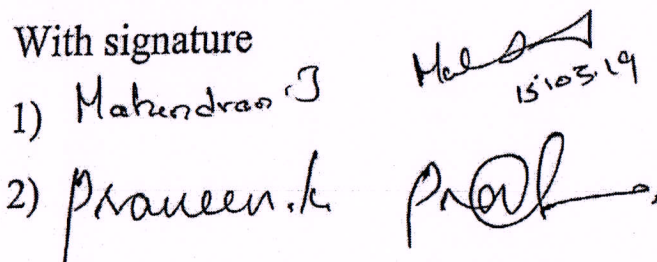 With signature
1) Mahendran.J
15.03.19
2) Praveen.k